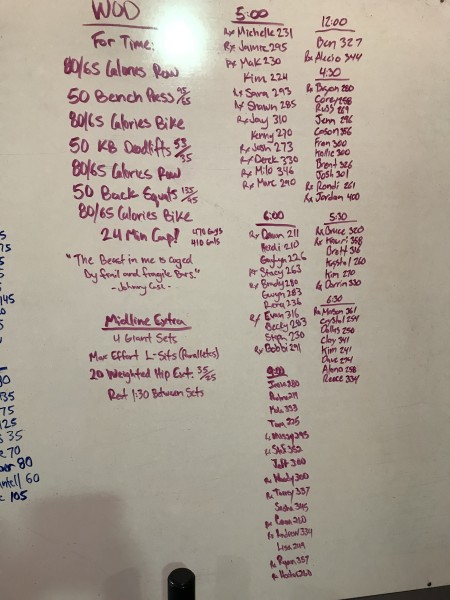 WOD
For Time:
80/65 Calories Row
50 Bench Press 95/65
80/65 Calories Bike
50 KB Deadlifts 53/35
80/65 Calories Row
50 Back Squats 135/95
80/65 Calories Bike
24 Min Cap!
470 Guys
410 Gals
"The Beast in me is caged
By frail and fragile Bars."
- Johnny Cash -
Midline Extra
4 Giant Sets
Max Effort L-Sits (Paralletes)
20 Weighted Hip Ext. 35/25
Rest 1:30 Between Sets
5:00
Rx Michelle 231
Rx Jamie 295
Rx Mak 230
Kim 224
Rx Sara 293
Rx Shawn 285
Rx Jay 310
Kenny 270
Rx Josh 273
Rx Derek 330
Rx Milo 346
Rx Marc 290
6:00
Rx Dawn 211
Heidi 210
226
Stacy 263
Rx Brady 280
Gwyn 283
236
Rx Evan 316
Becky 283
Steph 230
Rx Bobbi 291
9:00
380
219
353
Tara 225
Missy 295
352
Jeff 300
300
Rx Tammy 337
Sasha 345
210
Rx Andrew 334
Lisa 249
Rx Ryan 357
12:00
Ben 327
Rx Alecio 344
4:30
Rx Bryan 280
Corey 258
Russ 269
Jenn 296
Cason 356
Fran 300
Kellie 300
Brent 326
Josh 301
Rx Rondi 261
Rx Jordan 400
5:30
Rx Bruce 320
Rx 358
Brett 316
Krystal 260
Kim 270
Darrin 330
6:30
Rx Mason 361
Crystal 254
Dallas 250
Clay 341
Kim 241
Dave 274
Alana 258
Reece 334
5
75
145
135
75
125
35
70
80
60
105